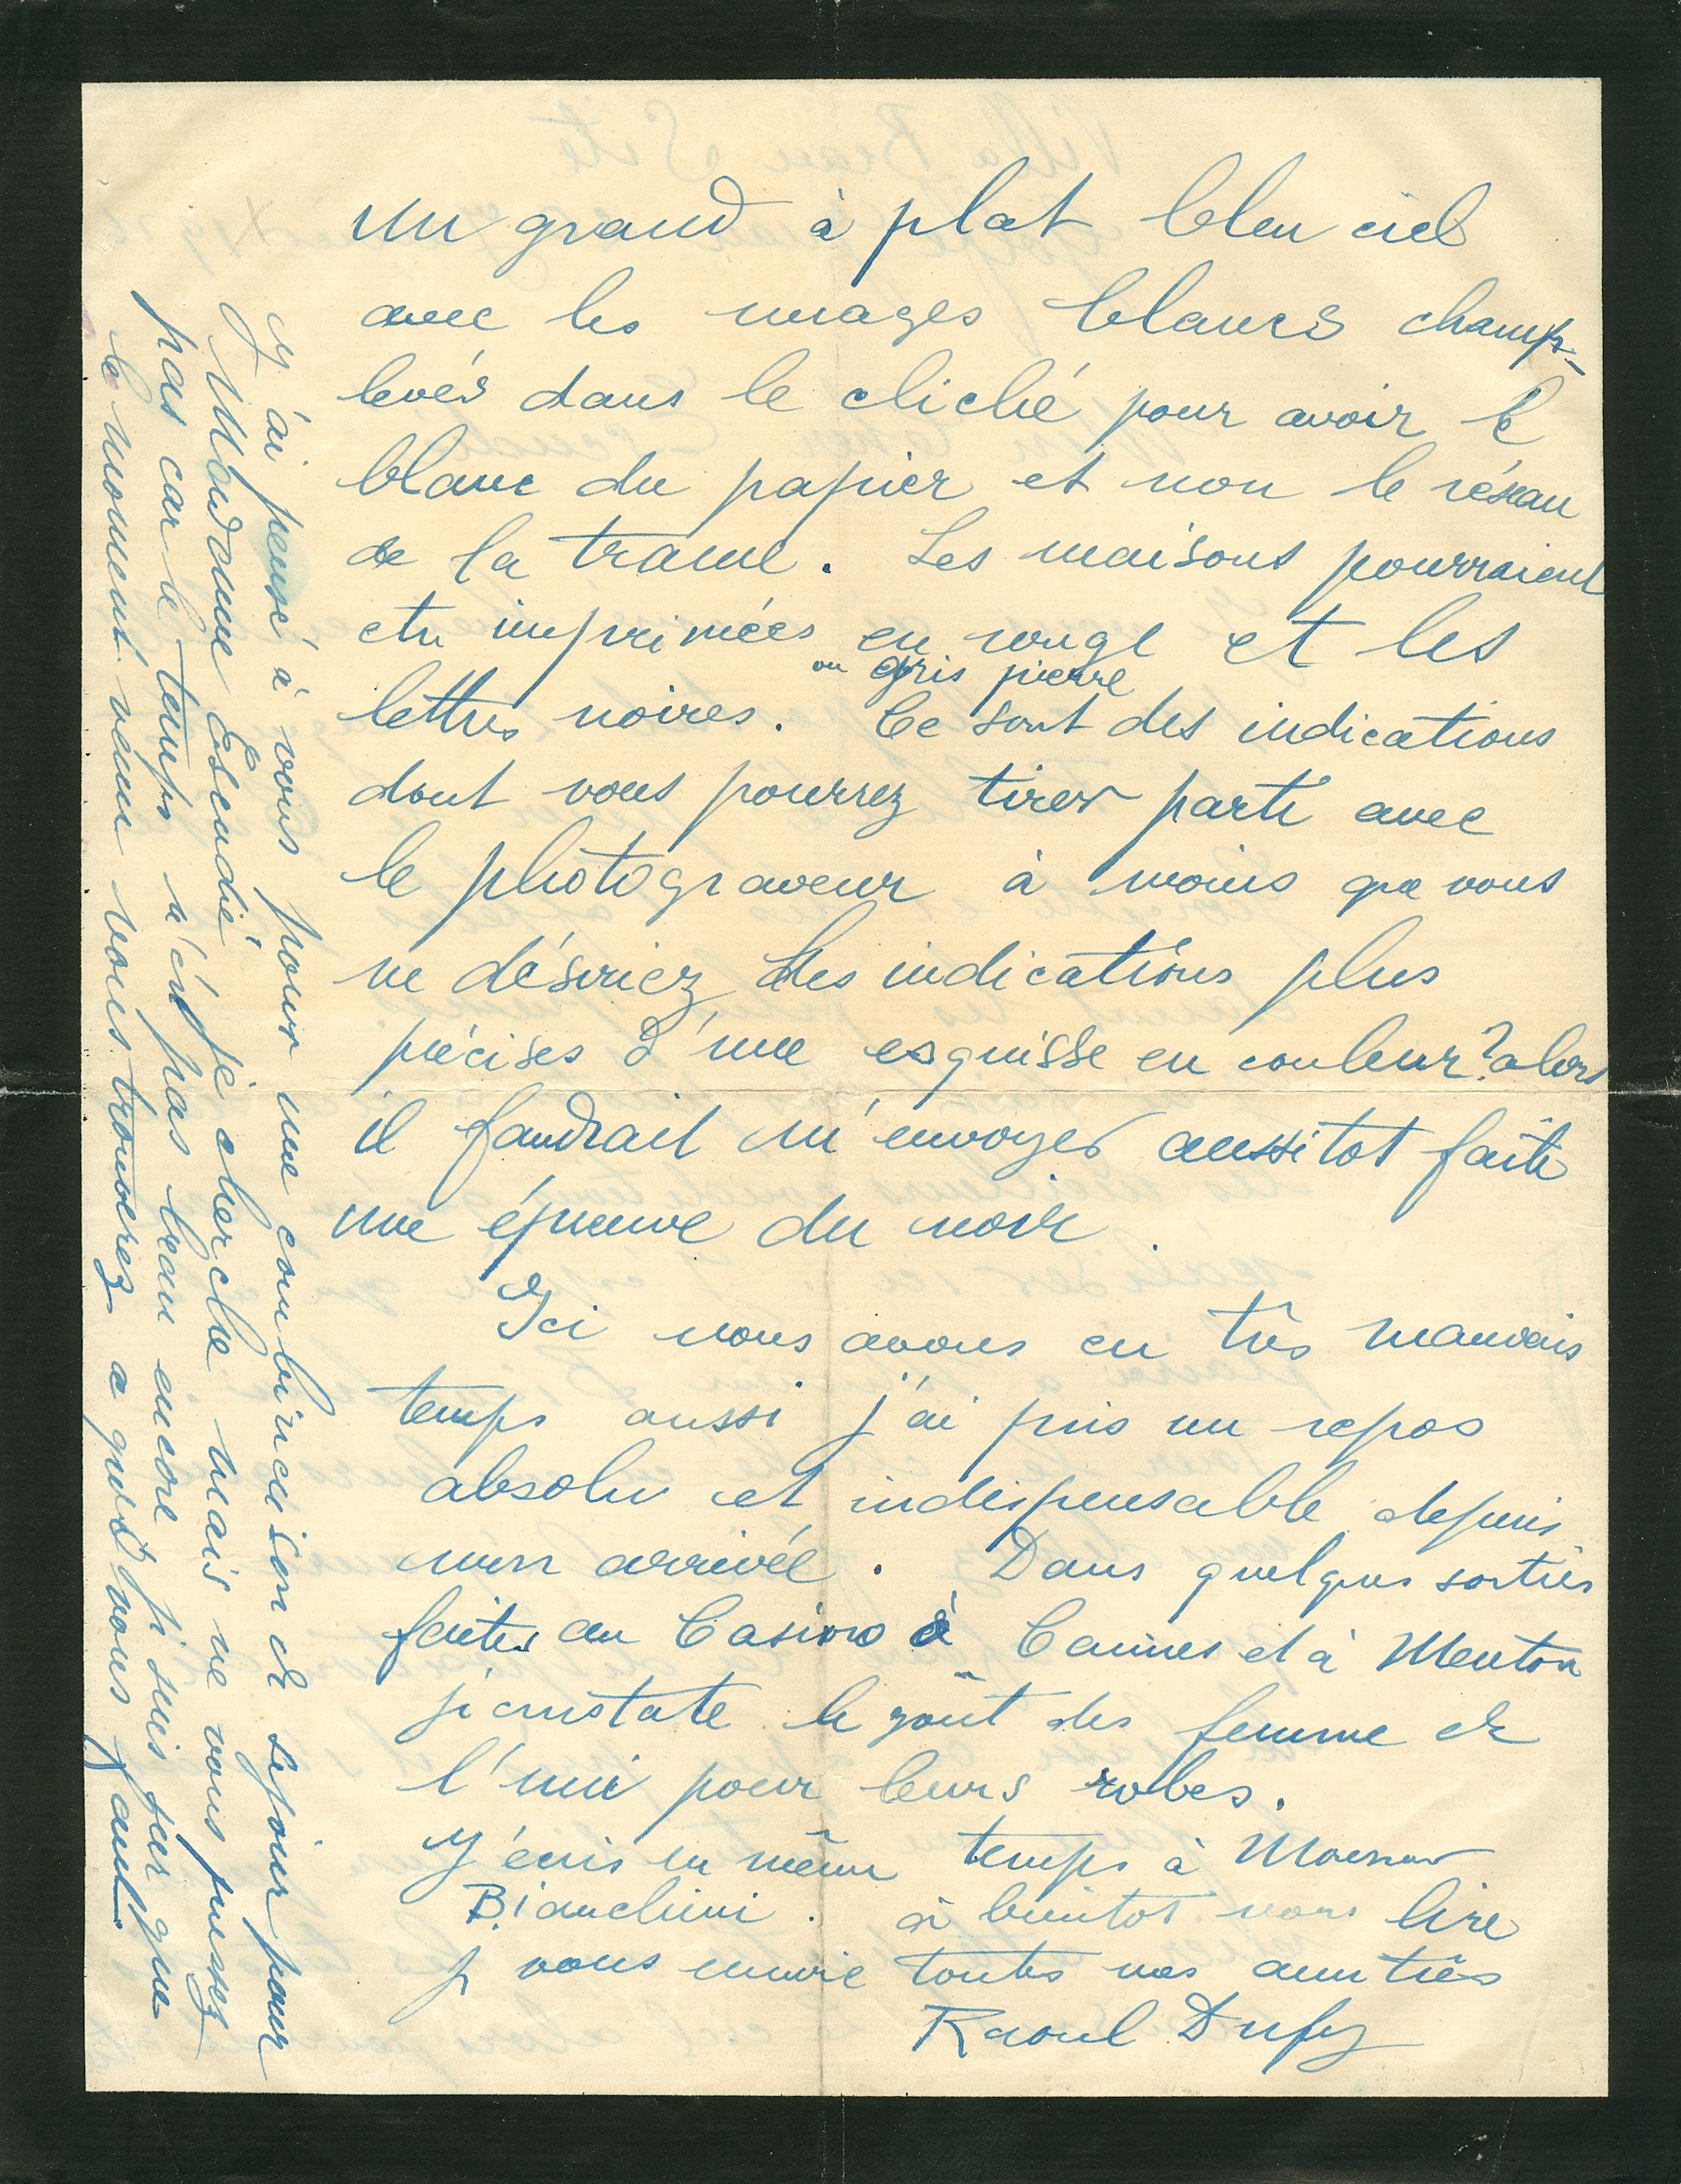 un grand à plat bleu ciel
avec les nuages blancs champ-
levés dans le cliché pour avoir le
blanc du papier et non le réseau
de la trame. Les maisons pourraient
etre imprimées en rouge et les
ou gris pierre
lettres noires. Ce sont des indications
dont vous pourrez tirer parti avec
le photograveur à moins que vous
ne désiriez des indications plus
précises d'une esquisse en couleur? alors
il faudrait m'envoyer aussitot faite
une épreuve du noir.
Ici nous avons eu très mauvais
temps aussi j'ai pris un repos
absolu et indispensable depuis
mon arrivée. Dans quelques sorties
faites au Casino à Cannes et à Menton
je constate le goût des femme de
l'uni pour leurs robes.
J'écris en même temps à
Bianchini. à bientot vous lire
je vous envoie toutes mes amitiés
Raoul Dufy
J'ai pensé à vous pour une combinaison de séjour pour
Madame Escudié je cherche mais ne vous pressez
pas car le temps n'est pas beau encore je suis sur que
le moment venu vous trouverez ce qu'il vous faut.